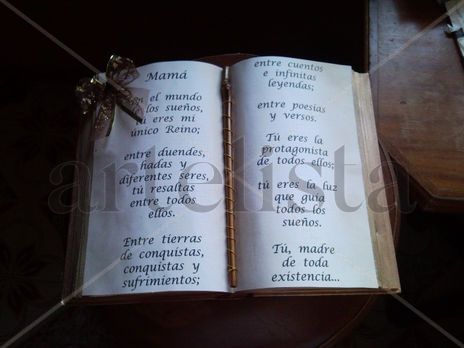 Mamá
en el mundo
los sueños,
tú eres mi
único Reino;
entre duendes,
hadas y
diferentes seres,
tú resaltas
entre todos
ellos.
Entre tierras
de conquistas,
conquistas y
sufrimientos;
entre cuentos
e infinitas
leyendas;
entre poesías
y versos.
Tú eres la
protagonista
de todos ellos;
tú eres la luz
que guía
todos los
sueños.
Tú, madre
de toda
existencia...
artelista